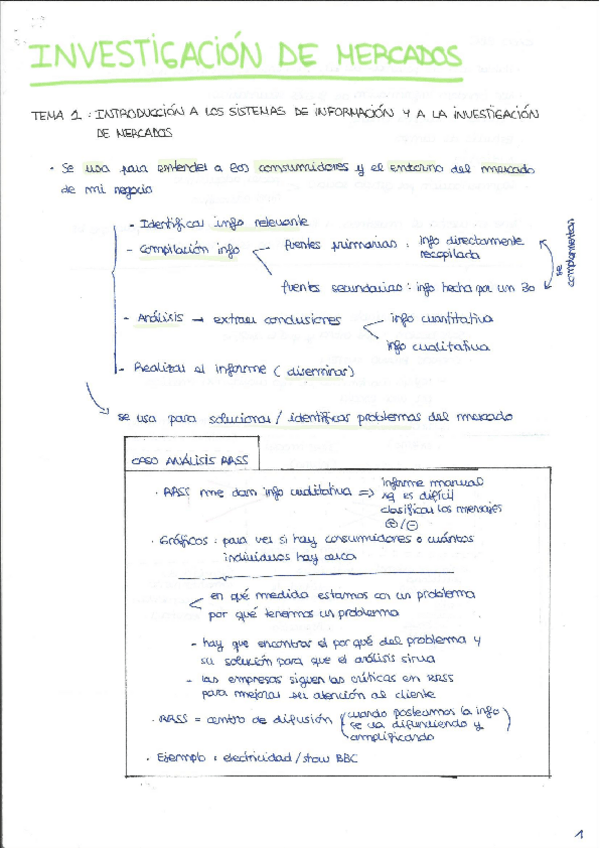 INVESTIGACIÓN DE MERCADOS
TEMA 1 : INTRODUCCIÓN A LOS SISTEMAS DE INFORMACIÓN Y A LA INVESTIGACIÓN
DE MERCADOS
· Se usa para entender a los consumidores y el entorno del mercado
de mi negocio
- Identificar info relevante
- Compilación info
fuentes primarias : info directamente
recopilada
fuentes secundarias : info hecha por un 3o
se complementan
- Análisis → extraer conclusiones
info cuantitativa
info cualitativa
- Realizar el informe ( diseminar)
se usa para solucionar / identificar problemas del mercado
CASO ANÁLISIS RRSS
· RRSS me dan info cualitativa => informe manual
xq es difícil
clasificar los mensajes
⊕/⊖
· Gráficos : para ver si hay consumidores o cuántos
individuos hay cerca
en qué medida estamos con un problema
por qué tenemos un problema
- hay que encontrar el por qué del problema y
su solución para que el análisis sirva
- las empresas siguen las críticas en RRSS
para mejorar su atención al cliente
· RRSS = centro de difusión (cuando posteamos la info
se va difundiendo y
amplificando)
· Ejemplo : electricidad / show BBC
1